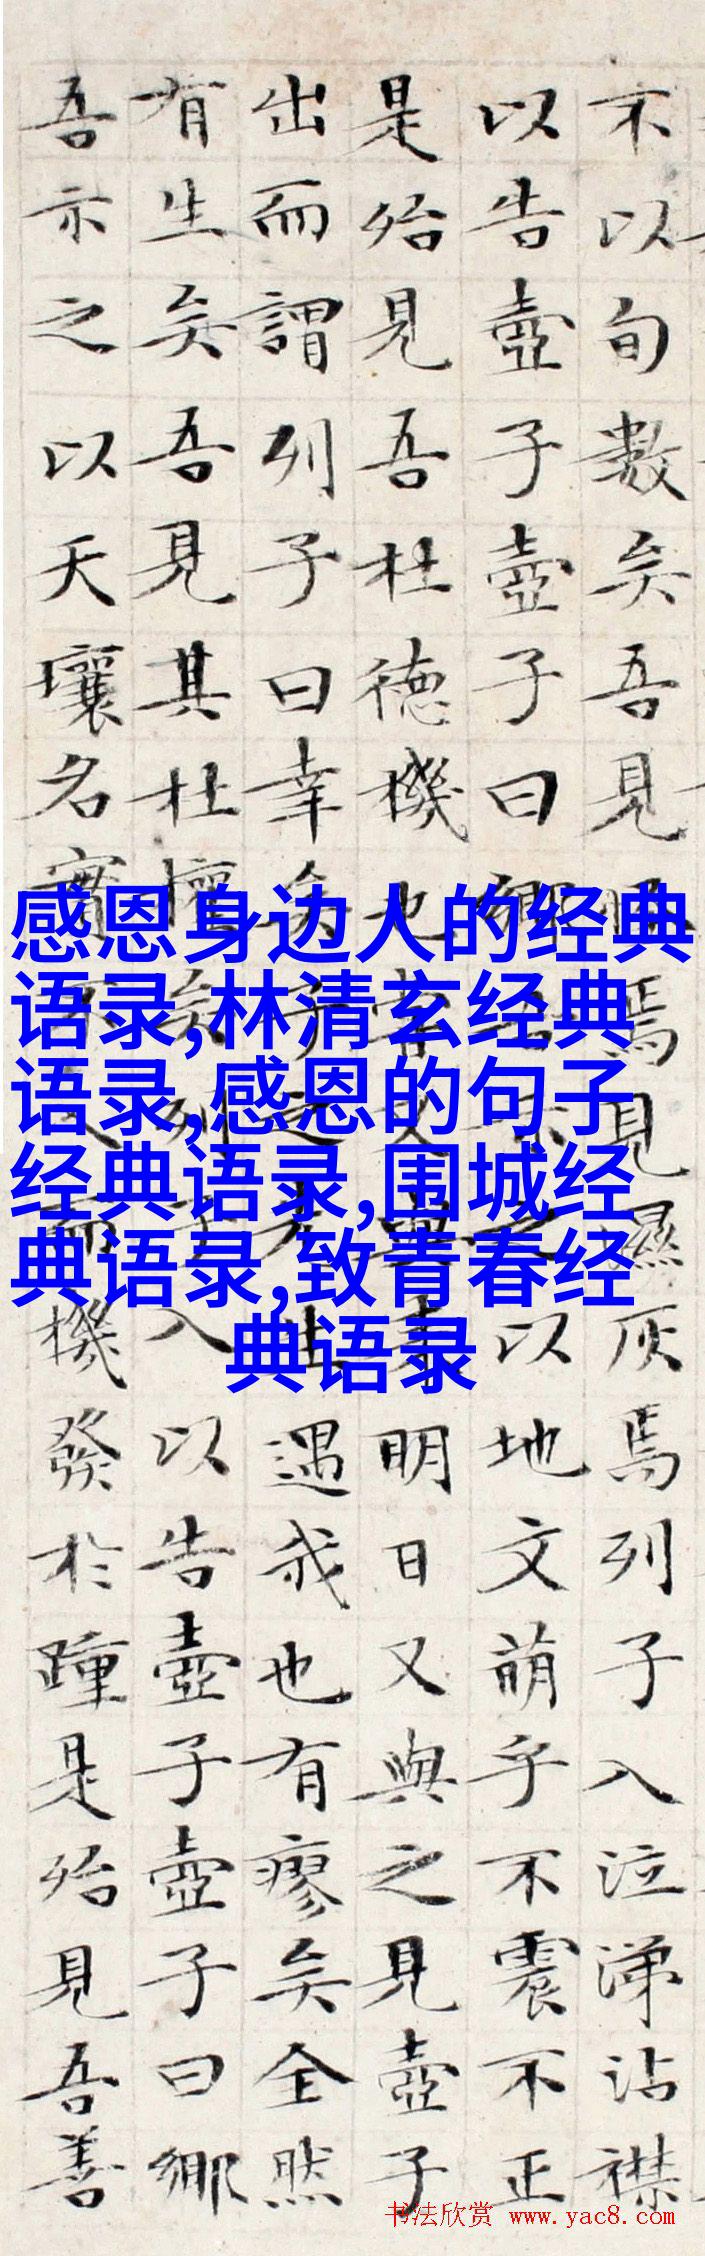 不以旬數矣吾見怪焉見濕灰焉列子入泣涕沾襟
以告壺子壺子曰鄉吾示之以地文萌乎不震不正
是殆見吾杜德機也嘗又與來明日又與之見壺子
出而謂列子曰幸矣子之先生遇我也有瘳矣全然
有生矣吾見其杜權矣列子入以告壺子壺子曰鄉
吾示之以天壤名實不入而機發於踵是殆見吾善
感恩身边人的经典
语录,林清玄经典
语录,感恩的句子
经典语录,围城经
典语录,致青春经
典语录
书法欣赏 www.yac8.com